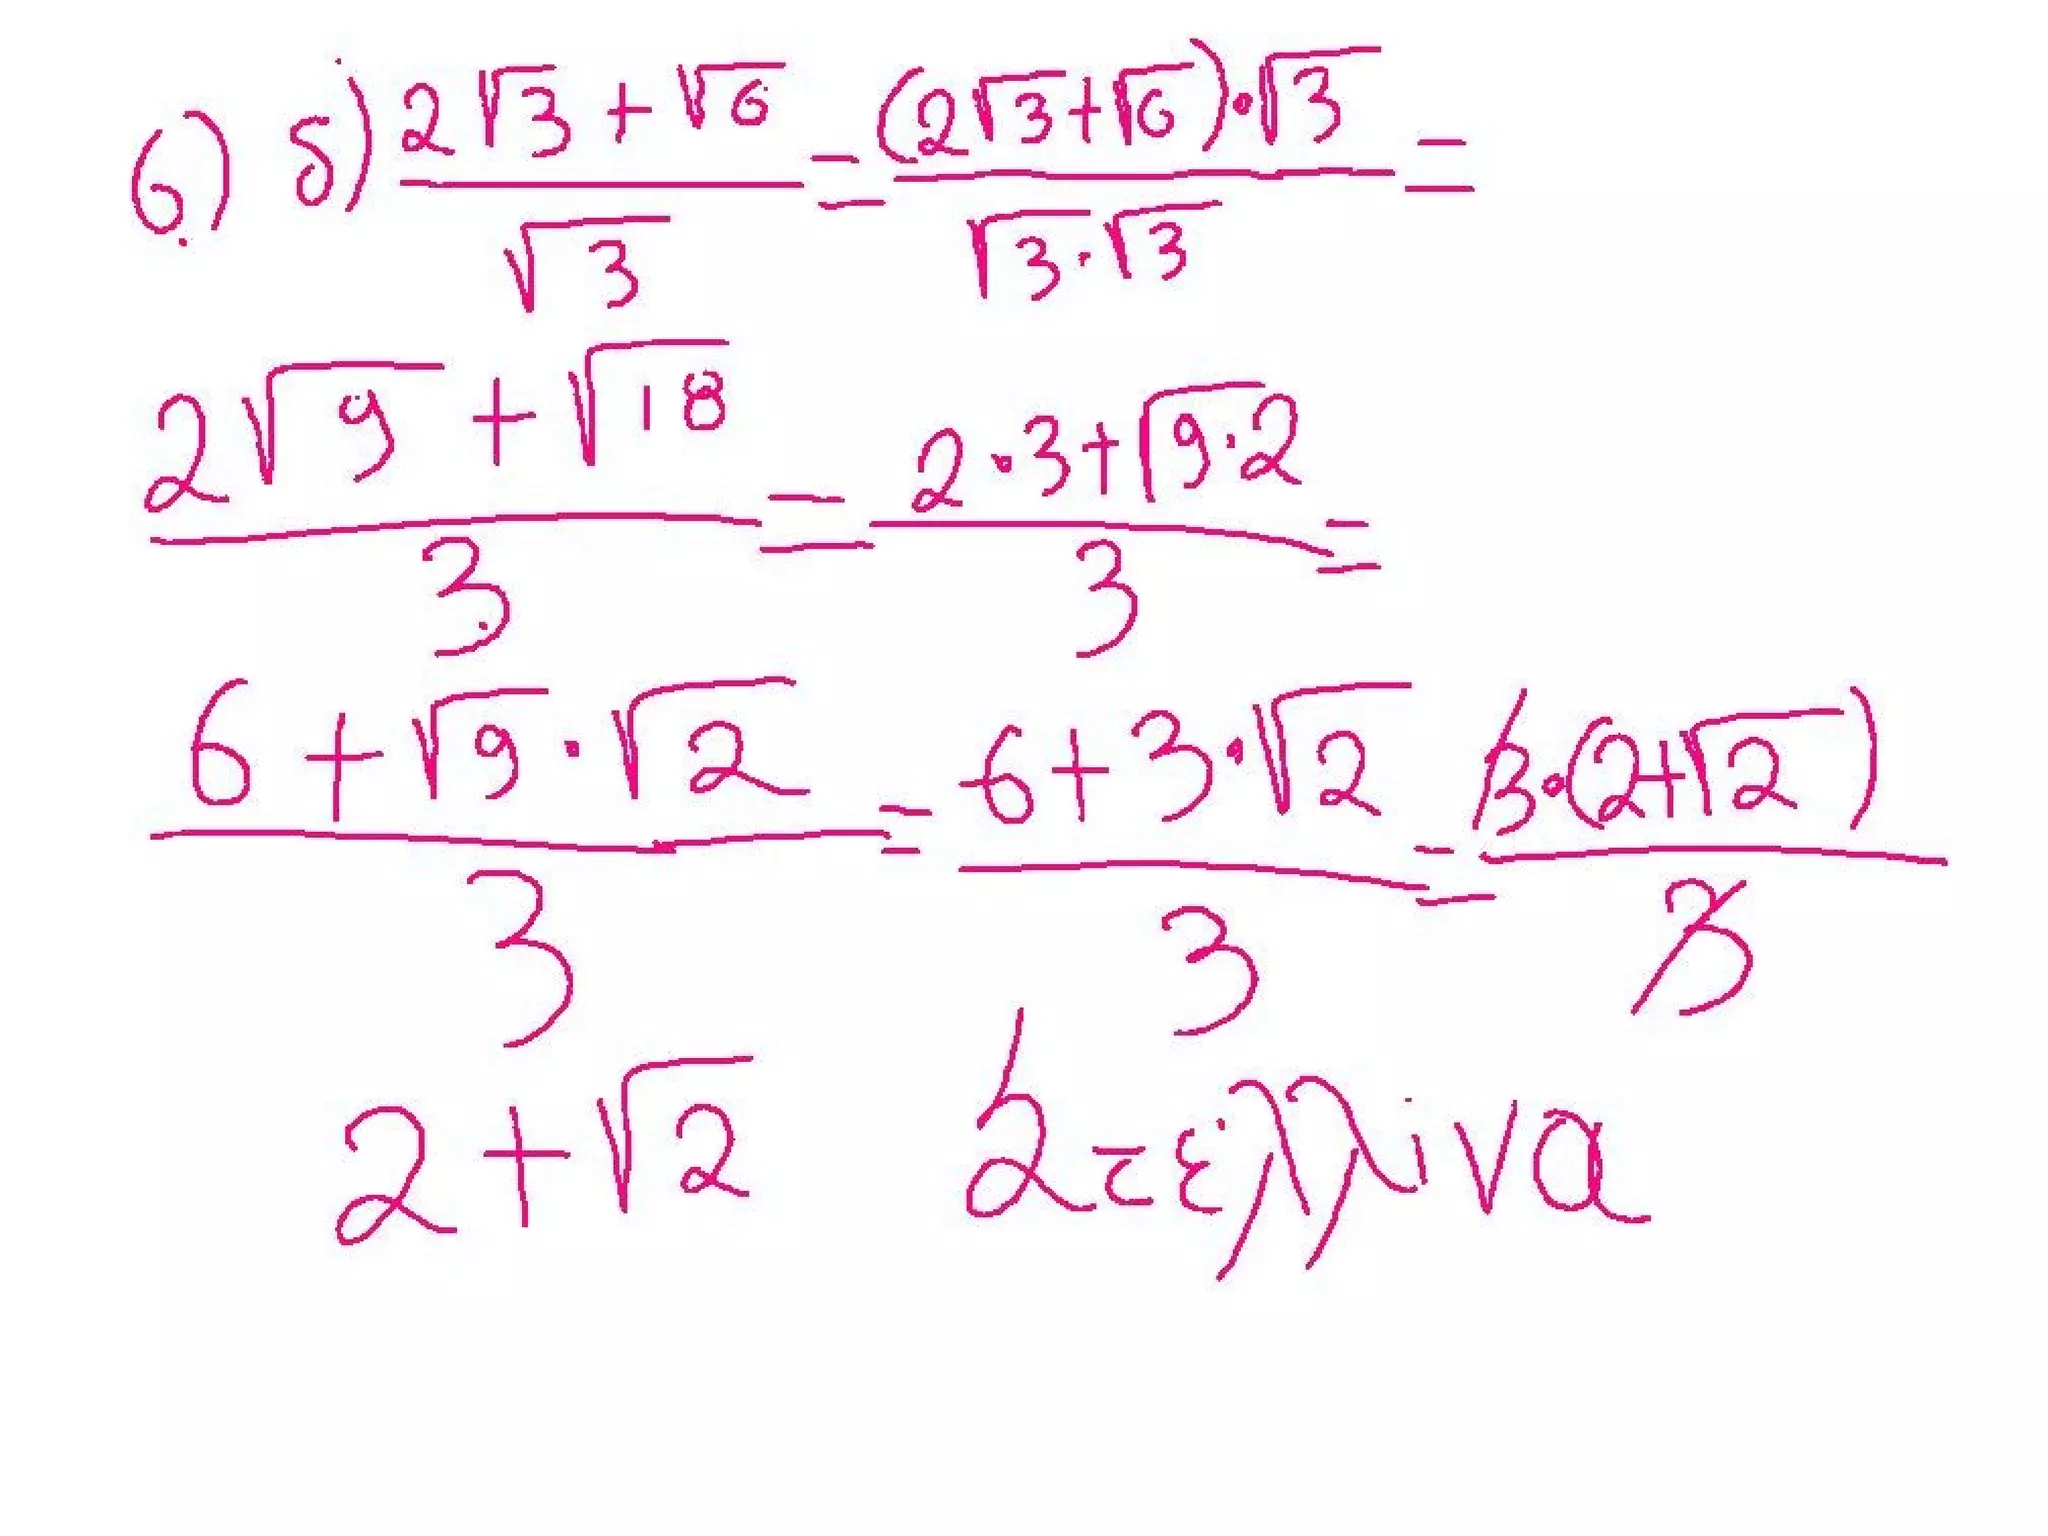 6) δ) (2√3+√6)/√3 = ((2√3+√6)·√3)/(√3·√3) =
(2√9+√18)/3 = (2·3+√9·2)/3 =
(6+√9·√2)/3 = (6+3·√2)/3 = (3·(2+√2))/3
2+√2